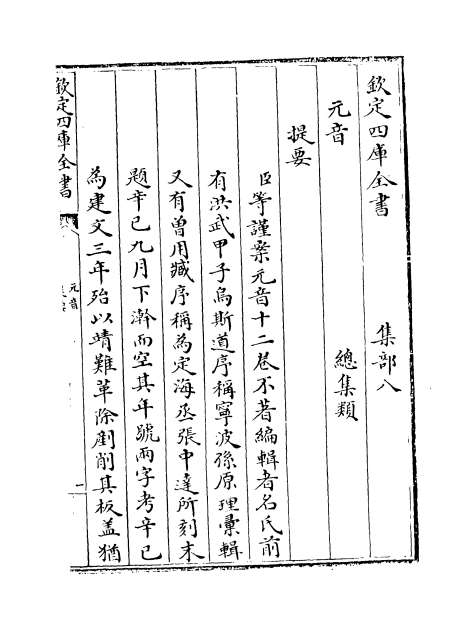 欽定四庫全書　集部八
元音　總集類
提要
臣等謹案元音十二卷不著編輯者名氏前
有洪武甲子烏斯道序稱寧波孫原理彚輯
又有曾用臧序稱為定海丞張中達所刻末
題辛已九月下澣而空其年號兩字考辛已
為建文三年殆以靖難革除剷削其板盖猶
欽定四庫全書
元音
提要
一